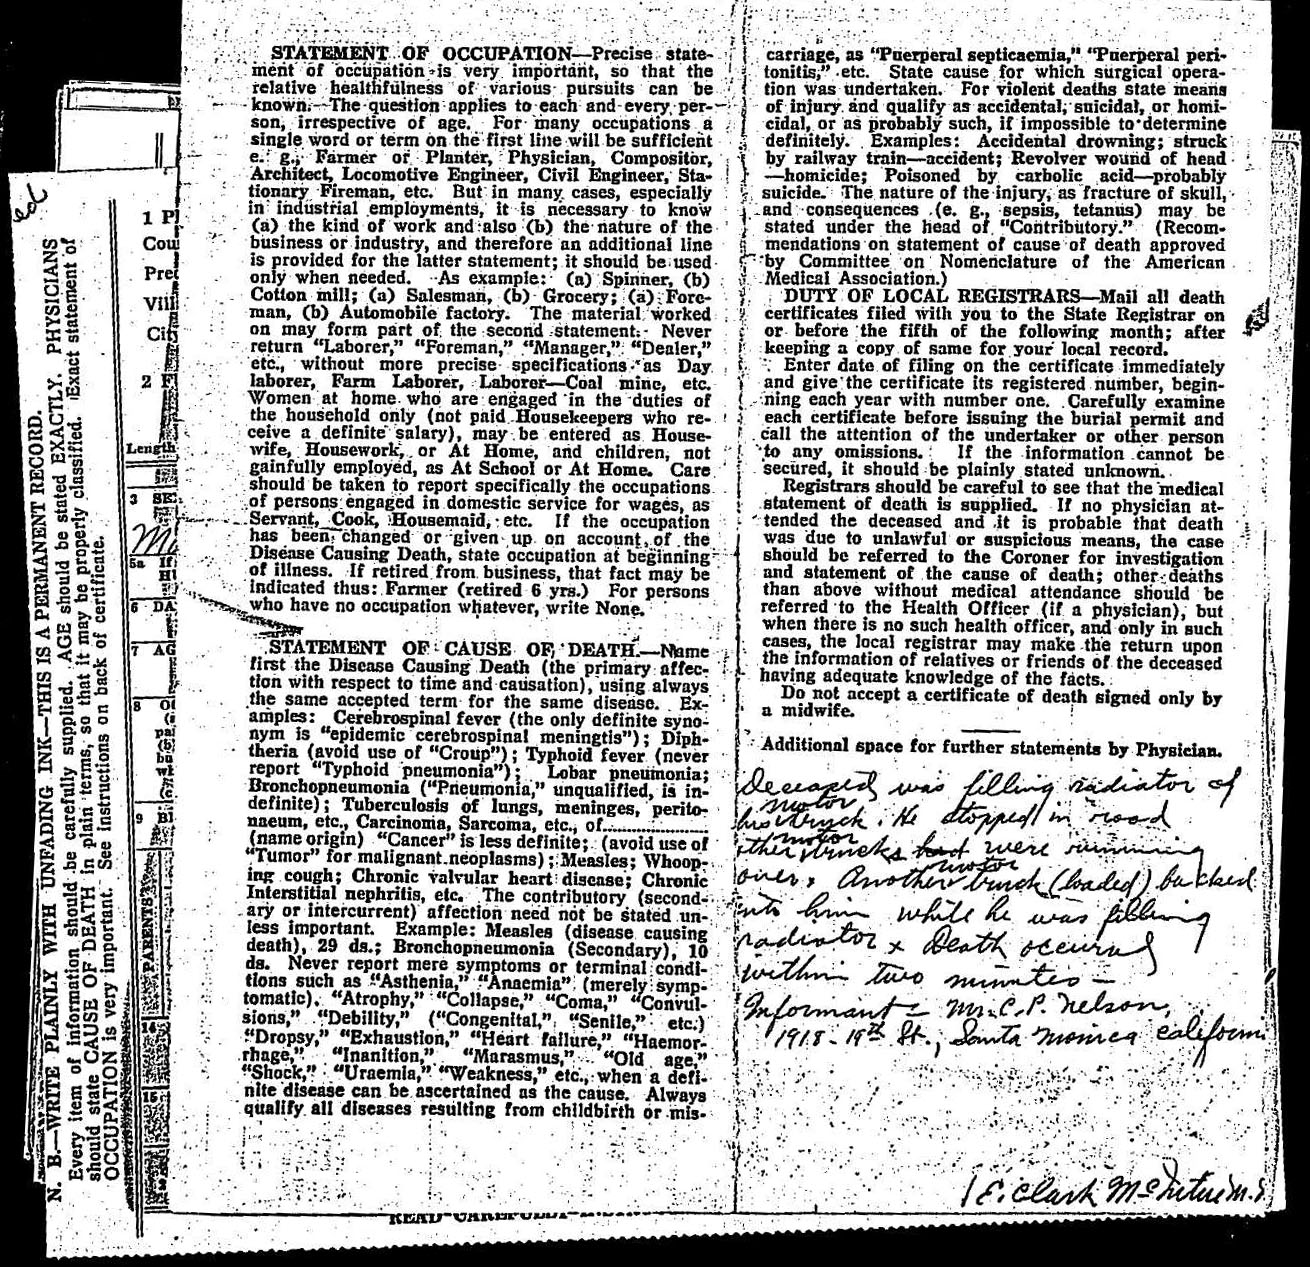 ed
N. B.—WRITE PLAINLY WITH UNFADING INK—THIS IS A PERMANENT RECORD.
Every item of information should be carefully supplied. AGE should be stated EXACTLY. PHYSICIANS
should state CAUSE OF DEATH in plain terms, so that it may be properly classified. Exact statement of
OCCUPATION is very important. See instructions on back of certificate.
1 Pl
Cou
Prec
Vill
Cit
2 F
Length
3 SE
5a If
6 DA
7 AG
8
9 BI
PARENTS
14
15
STATEMENT OF OCCUPATION—Precise state-
ment of occupation is very important, so that the
relative healthfulness of various pursuits can be
known. The question applies to each and every per-
son, irrespective of age. For many occupations a
single word or term on the first line will be sufficient
e. g., Farmer or Planter, Physician, Compositor,
Architect, Locomotive Engineer, Civil Engineer, Sta-
tionary Fireman, etc. But in many cases, especially
in industrial employments, it is necessary to know
(a) the kind of work and also (b) the nature of the
business or industry, and therefore an additional line
is provided for the latter statement; it should be used
only when needed. As example: (a) Spinner, (b)
Cotton mill; (a) Salesman, (b) Grocery; (a) Fore-
man, (b) Automobile factory. The material worked
on may form part of the second statement. Never
return "Laborer," "Foreman," "Manager," "Dealer,"
etc., without more precise specifications as Day
laborer, Farm Laborer, Laborer—Coal mine, etc.
Women at home who are engaged in the duties of
the household only (not paid Housekeepers who re-
ceive a definite salary), may be entered as House-
wife, Housework, or At Home, and children, not
gainfully employed, as At School or At Home. Care
should be taken to report specifically the occupations
of persons engaged in domestic service for wages, as
Servant, Cook, Housemaid, etc. If the occupation
has been changed or given up on account of the
Disease Causing Death, state occupation at beginning
of illness. If retired from business, that fact may be
indicated thus: Farmer (retired 6 yrs.) For persons
who have no occupation whatever, write None.
STATEMENT OF CAUSE OF DEATH.—Name
first the Disease Causing Death (the primary affec-
tion with respect to time and causation), using always
the same accepted term for the same disease. Ex-
amples: Cerebrospinal fever (the only definite syno-
nym is "epidemic cerebrospinal meningtis"); Diph-
theria (avoid use of "Croup"); Typhoid fever (never
report "Typhoid pneumonia"); Lobar pneumonia;
Bronchopneumonia ("Pneumonia," unqualified, is in-
definite); Tuberculosis of lungs, meninges, perito-
naeum, etc., Carcinoma, Sarcoma, etc., of..............
(name origin) "Cancer" is less definite; (avoid use of
"Tumor" for malignant neoplasms); Measles; Whoop-
ing cough; Chronic valvular heart disease; Chronic
Interstitial nephritis, etc. The contributory (second-
ary or intercurrent) affection need not be stated un-
less important. Example: Measles (disease causing
death), 29 ds.; Bronchopneumonia (Secondary), 10
ds. Never report mere symptoms or terminal condi-
tions such as "Asthenia," "Anaemia" (merely symp-
tomatic), "Atrophy," "Collapse," "Coma," "Convul-
sions," "Debility," ("Congenital," "Senile," etc.)
"Dropsy," "Exhaustion," "Heart failure," "Haemor-
rhage," "Inanition," "Marasmus," "Old age,"
"Shock," "Uraemia," "Weakness," etc., when a defi-
nite disease can be ascertained as the cause. Always
qualify all diseases resulting from childbirth or mis-
carriage, as "Puerperal septicaemia," "Puerperal peri-
tonitis," etc. State cause for which surgical opera-
tion was undertaken. For violent deaths state means
of injury and qualify as accidental, suicidal, or homi-
cidal, or as probably such, if impossible to determine
definitely. Examples: Accidental drowning; struck
by railway train—accident; Revolver wound of head
—homicide; Poisoned by carbolic acid—probably
suicide. The nature of the injury, as fracture of skull,
and consequences (e. g., sepsis, tetanus) may be
stated under the head of "Contributory." (Recom-
mendations on statement of cause of death approved
by Committee on Nomenclature of the American
Medical Association.)
DUTY OF LOCAL REGISTRARS—Mail all death
certificates filed with you to the State Registrar on
or before the fifth of the following month; after
keeping a copy of same for your local record.
Enter date of filing on the certificate immediately
and give the certificate its registered number, begin-
ning each year with number one. Carefully examine
each certificate before issuing the burial permit and
call the attention of the undertaker or other person
to any omissions. If the information cannot be
secured, it should be plainly stated unknown.
Registrars should be careful to see that the medical
statement of death is supplied. If no physician at-
tended the deceased and it is probable that death
was due to unlawful or suspicious means, the case
should be referred to the Coroner for investigation
and statement of the cause of death; other deaths
than above without medical attendance should be
referred to the Health Officer (if a physician), but
when there is no such health officer, and only in such
cases, the local registrar may make the return upon
the information of relatives or friends of the deceased
having adequate knowledge of the facts.
Do not accept a certificate of death signed only by
a midwife.
Additional space for further statements by Physician.
Deceased was filling radiator of
his motor truck. He stopped in road
other motor trucks had were running
over. Another motor truck (loaded) backed
into him while he was filling
radiator x Death occured
within two minutes—
Informant = Mr. C. P. Nelson,
1918-19th St., Santa Monica Californi
E. Clark McIntire M.D.
READ CAREFULLY